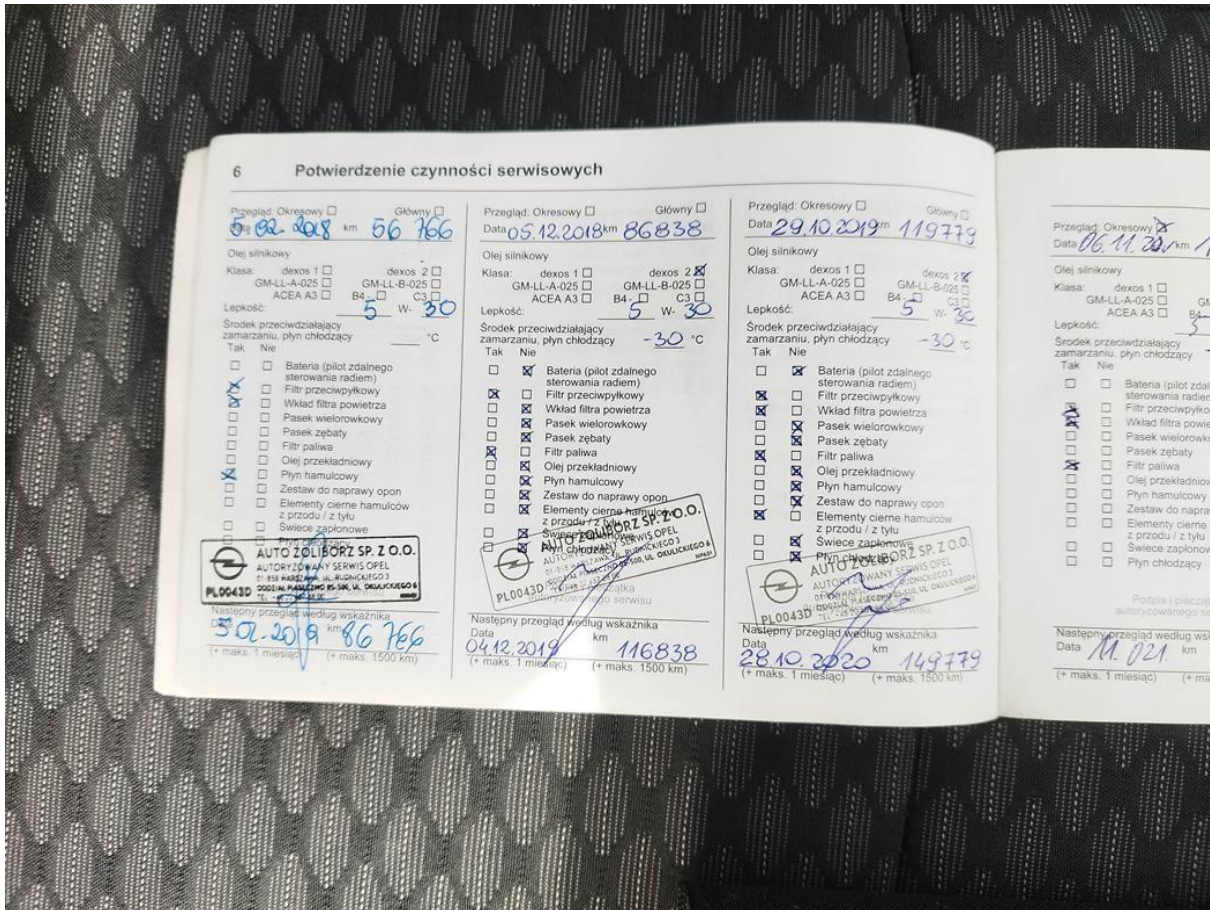 6 Potwierdzenie czynności serwisowych
Przegląd: Okresowy Główny
02. 2018 km 56 766
Olej silnikowy
Klasa: dexos 1 dexos 2
GM-LL-A-025 GM-LL-B-025
ACEA A3 B4- C3
Lepkość: 5 W- 30
Środek przeciwdziałający
zamarzaniu, płyn chłodzący °C
Tak Nie
Bateria (pilot zdalnego
sterowania radiem)
Filtr przeciwpyłkowy
Wkład filtra powietrza
Pasek wielorowkowy
Pasek zębaty
Filtr paliwa
Olej przekładniowy
Płyn hamulcowy
Zestaw do naprawy opon
Elementy cierne hamulców
z przodu / z tyłu
Świece zapłonowe
Płyn chłodzący
AUTO ŻOLIBORZ SP. Z O.O.
AUTORYZOWANY SERWIS OPEL
01-858 WARSZAWA, UL. RUDNICKIEGO 3
PL0043D ODDZIAŁ PIASECZNO 05-500, UL. OKULICKIEGO 6
Następny przegląd według wskaźnika
2019 km 86 766
(+ maks. 1 miesiąc) (+ maks. 1500 km)
Przegląd: Okresowy Główny
Data 05.12.2018 km 86838
Olej silnikowy
Klasa: dexos 1 dexos 2
GM-LL-A-025 GM-LL-B-025
ACEA A3 B4- C3
Lepkość: 5 W- 30
Środek przeciwdziałający
zamarzaniu, płyn chłodzący -30 °C
Tak Nie
Bateria (pilot zdalnego
sterowania radiem)
Filtr przeciwpyłkowy
Wkład filtra powietrza
Pasek wielorowkowy
Pasek zębaty
Filtr paliwa
Olej przekładniowy
Płyn hamulcowy
Zestaw do naprawy opon
Elementy cierne hamulców
z przodu / z tyłu
Świece zapłonowe
Płyn chłodzący
AUTO ŻOLIBORZ SP. Z O.O.
AUTORYZOWANY SERWIS OPEL
PL0043D
autoryzowanego serwisu
Następny przegląd według wskaźnika
Data 04.12.2019 km 116838
(+ maks. 1 miesiąc) (+ maks. 1500 km)
Przegląd: Okresowy Główny
Data 29.10.2019 km 119779
Olej silnikowy
Klasa: dexos 1 dexos 2
GM-LL-A-025 GM-LL-B-025
ACEA A3 B4- C3
Lepkość: 5 W- 30
Środek przeciwdziałający
zamarzaniu, płyn chłodzący -30 °C
Tak Nie
Bateria (pilot zdalnego
sterowania radiem)
Filtr przeciwpyłkowy
Wkład filtra powietrza
Pasek wielorowkowy
Pasek zębaty
Filtr paliwa
Olej przekładniowy
Płyn hamulcowy
Zestaw do naprawy opon
Elementy cierne hamulców
z przodu / z tyłu
Świece zapłonowe
Płyn chłodzący
AUTO ŻOLIBORZ SP. Z O.O.
AUTORYZOWANY SERWIS OPEL
PL0043D
Następny przegląd według wskaźnika
Data 28.10.2020 km 149779
(+ maks. 1 miesiąc) (+ maks. 1500 km)
Przegląd: Okresowy
Data 06.11. km
Olej silnikowy
Klasa: dexos 1
GM-LL-A-025
ACEA A3 B4-
Lepkość: 5
Środek przeciwdziałający
zamarzaniu, płyn chłodzący
Tak Nie
Bateria (pilot
Filtr
Wkład filtra
Pasek
Pasek zębaty
Filtr paliwa
Płyn hamulcowy
Zestaw do
Elementy cierne
z przodu / z tyłu
Świece
Płyn chłodzący
Podpis i
Następny przegląd według
Data 11. 021. km
(+ maks. 1 miesiąc)